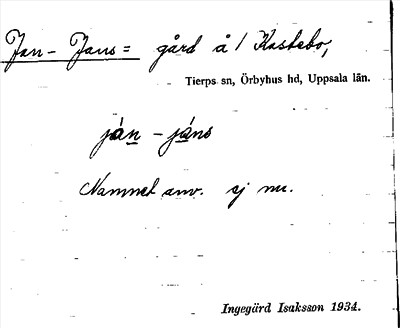 Jan-Jans = gård å / Kastebo,
Tierps sn, Örbyhus hd, Uppsala län.
ján - jáns
Namnet anv. ej nu.
Ingegärd Isaksson 1934.